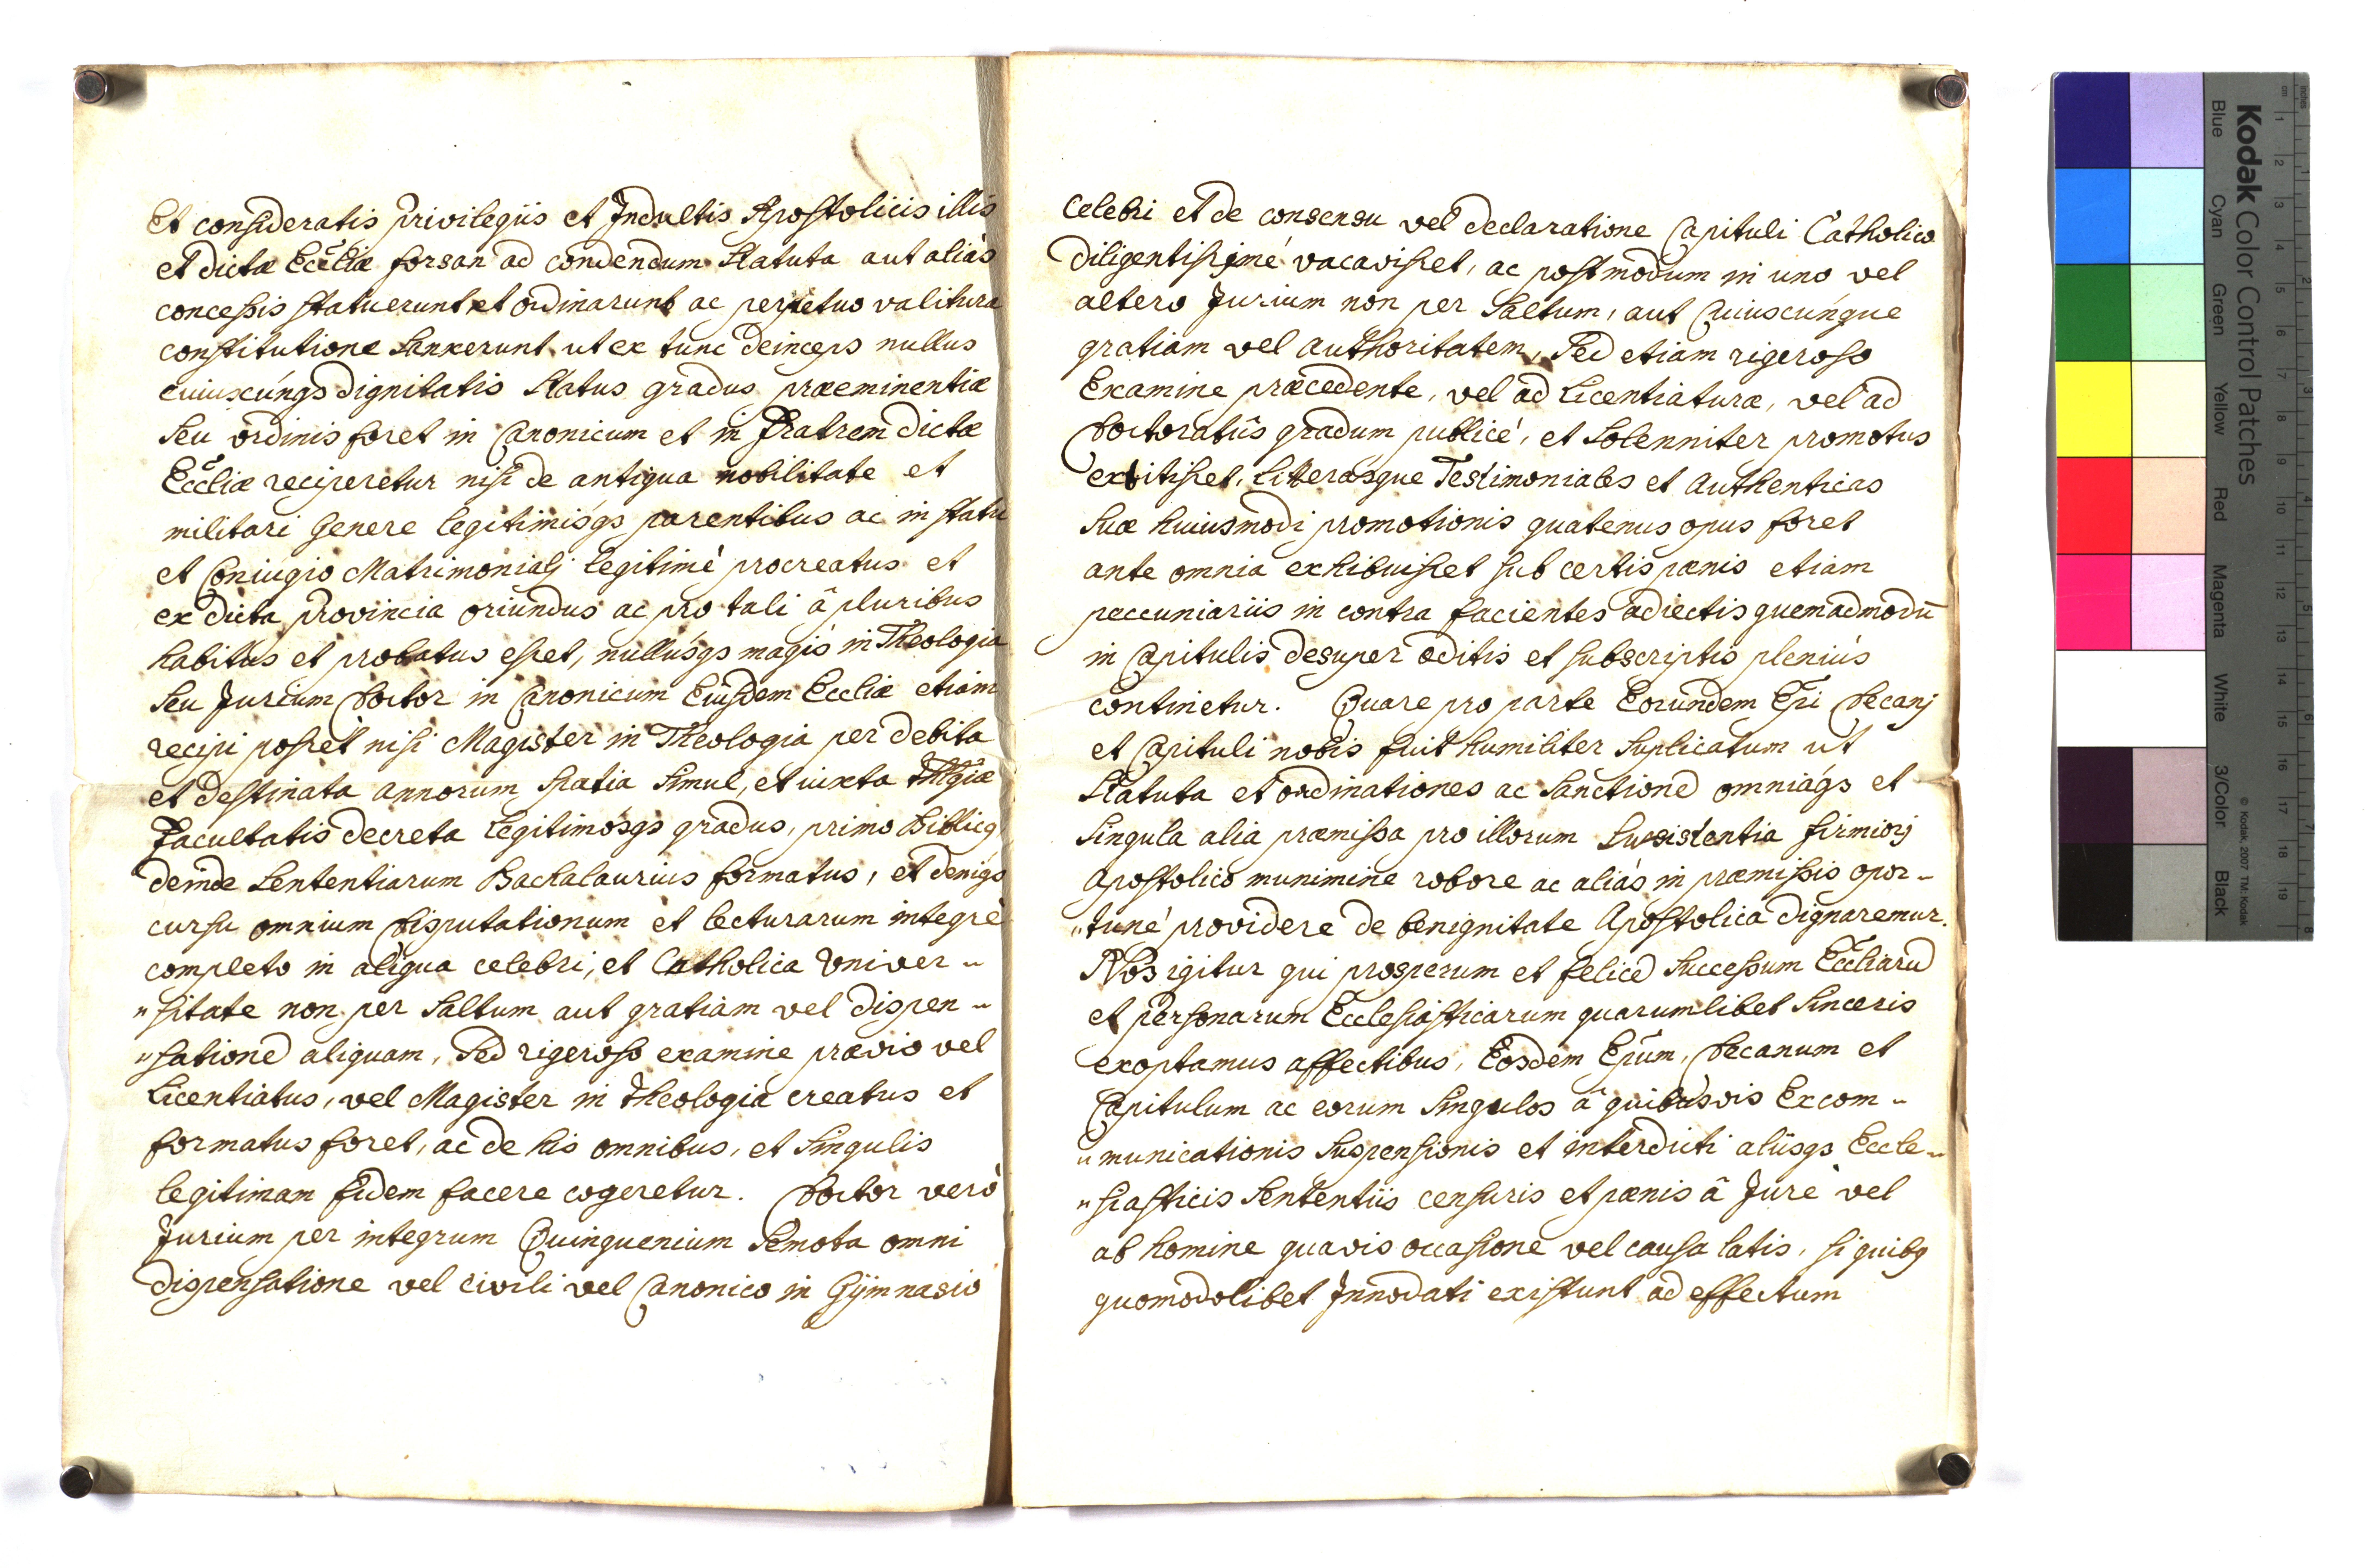 Et consideratis Privilegiis et Indultis Apostolicis illis
et dictæ Eccliæ forsan ad condendum Statuta aut aliàs
concessis statuerunt et ordinarunt ac perpetuo valitura
constitutione Sanxerunt ut ex tunc deinceps nullus
cuiuscúnqs dignitatis Status gradus præeminentiæ
Seu ordinis foret in Canonicum et in Fratrem dictæ
Eccliæ reciperetur nisi de antiqua nobilitate et
militari Genere legitimisqs parentibus ac in statu
et Coniugio Matrimonialj legitimè procreatus et
ex dicta Provincia oriundus ac pro tali â pluribus
habitus et probatus esset, nullusqs magis in Theologia
Seu Jurium Doctor in Canonicum Eiusdem Eccliæ etiam
recipi posset nisi Magister in Theologia per debita
et destinata annorum spatia Simul, et iuxta thlgiæ
Facultatis decreta legitimosqs gradus, primo Biblicq
deinde Sententiarum Bachalaurius formatus, et deniqs
cursu omnium Disputationum et lecturarum integrè
completo in aliqua celebri, et Catholica Univer-
"sitate non per Saltum aut gratiam vel dispen-
"satione aliquam, Sed rigeroso examine prævio vel
Licentiatus, vel Magister in theologia creatus et
formatus foret, ac de his omnibus, et Singulis
legitimam fidem facere cogeretur. Doctor verò
Jurium per integrum Quinquenium Semota omni
dispensatione vel civili vel Canonico in Gÿmnasio
Celebri et de consensu vel declaratione Capituli Catholico
diligentissimé vacavisset, ac postmodum in uno vel
altero Jurium non per Saltum, aut Cuiuscúnque
gratiam vel authoritatem, Sed etiam rigeroso
Examine præcedente, vel ad Licentiaturæ, vel ad
Doctoratûs gradum publicé, et Solenniter promotus
extitisset, Litterasque Testimoniales et authenticas
Suæ huiusmodi promotionis quatenus opus foret
ante omnia exhibuisset sub certis pœnis etiam
peccuniariis in contra facientes adiectis quemadmodū
in Capitulis desuper æditis et subscriptis pleniùs
continetur. Quare pro parte Eorundem Epi Decanj
et Capituli nobis fuit humiliter Suplicatum ut
Statuta et ordinationes ac Sanctione omniáqs et
Singula alia præmissa pro illorum Susistentia firmiorj
Apostolico munimine robore ac aliàs in præmissis opor-
"tuné providere de benignitate Apostolica dignaremur.
Nos igitur qui prosperum et felice Successum Eccliaru
et personarum Ecclesiasticarum quarumlibet Sinceris
exoptamus affectibus, Eosdem Epum, Decanum et
Capitulum ac eorum Singulos â quibusvis Excom-
"municationis Suspensionis et interdicti aliisqs Eccle-
"siasticis Sententiis censuris et pœnis â Jure vel
ab homine quavis occasione vel causa latis, si quibq
quomodolibet Innodati existunt ad effectum
Kodak Color Control Patches
Blue Cyan Green Yellow Red Magenta White 3/Color Black
© Kodak, 2007 TM: Kodak
cm 1 2 3 4 5 6 7 8 9 10 11 12 13 14 15 16 17 18 19
inches 1 2 3 4 5 6 7 8